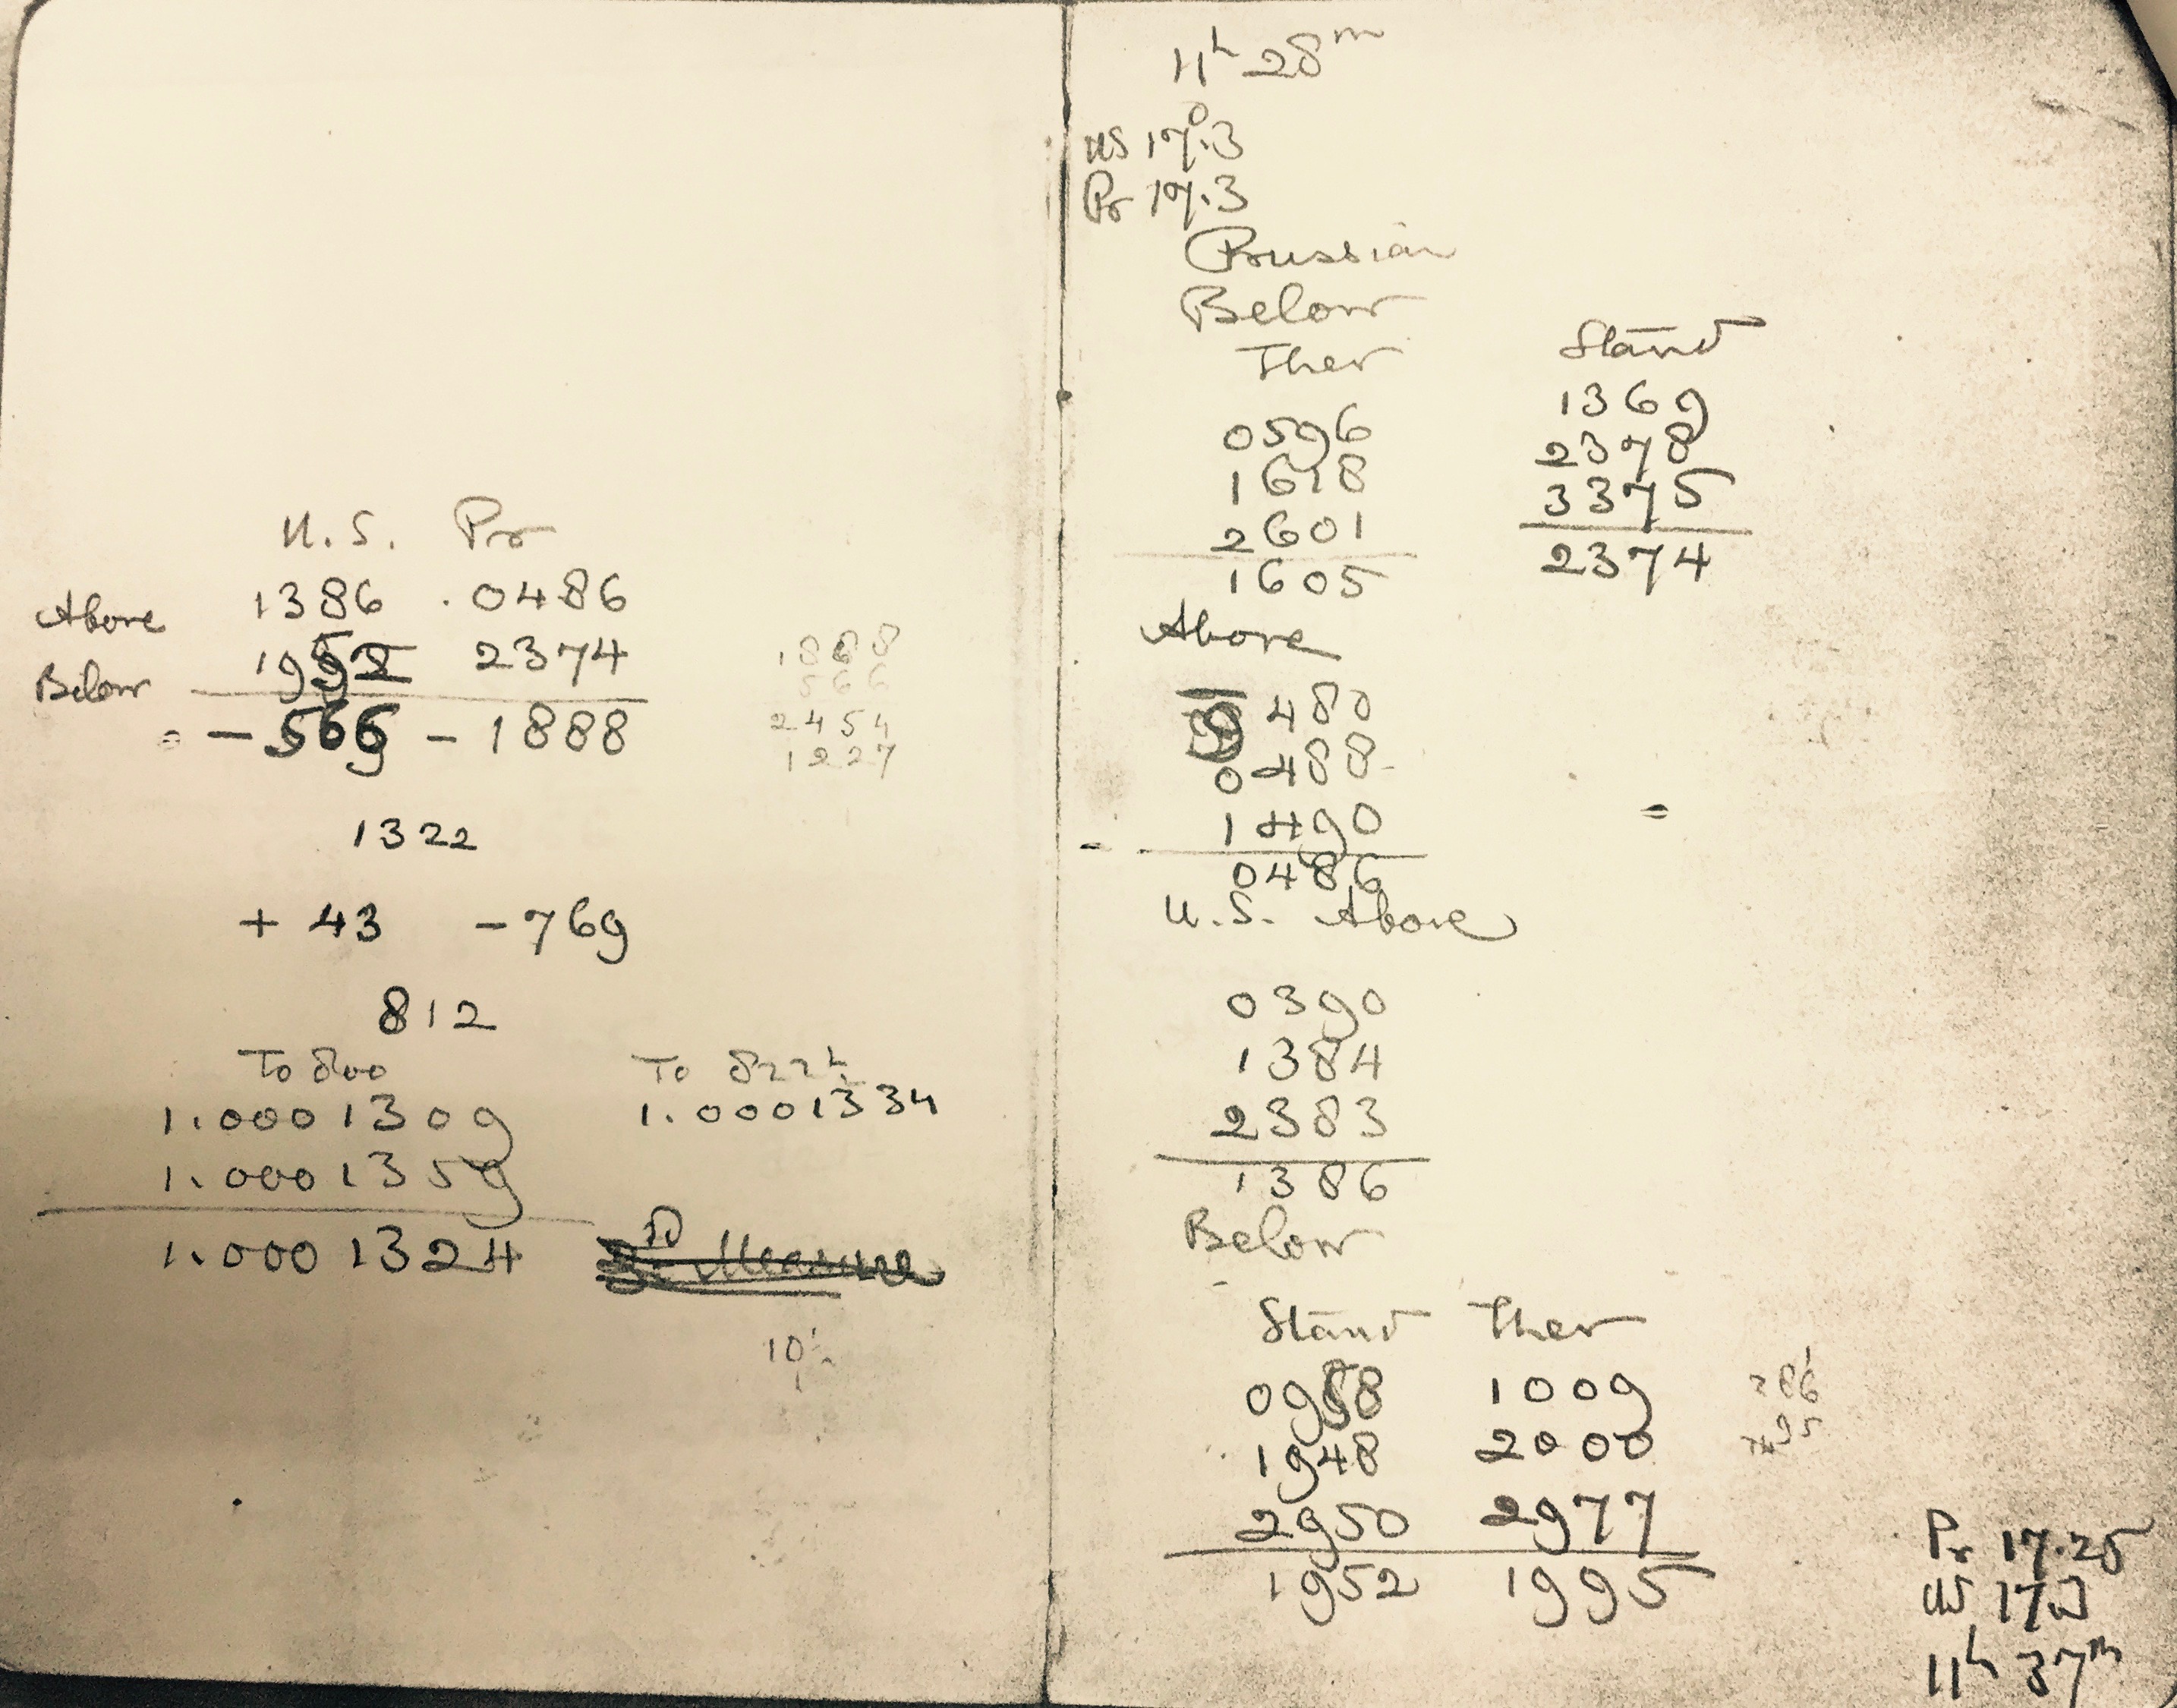 U.S. Pr
Above 1386 .0486
Below 1952 2374
= -566 -1888
1888
566
2454
1227
1322
+ 43 -769
812
To 800 To 822
1.0001309 1.0001334
1.0001359
1.0001324 Measure
11h 28m
US 17°.3
Pr 17.3
Prussian
Below
Ther Stand
0596 1369
1618 2378
2601 3375
1605 2374
Above
480
0488
1490
0486
U.S. Above
0390
1384
2383
1386
Below
Stand Ther
0958 1009
1948 2000
2950 2977
1952 1995
Pr 17.25
US 17
11h 37m